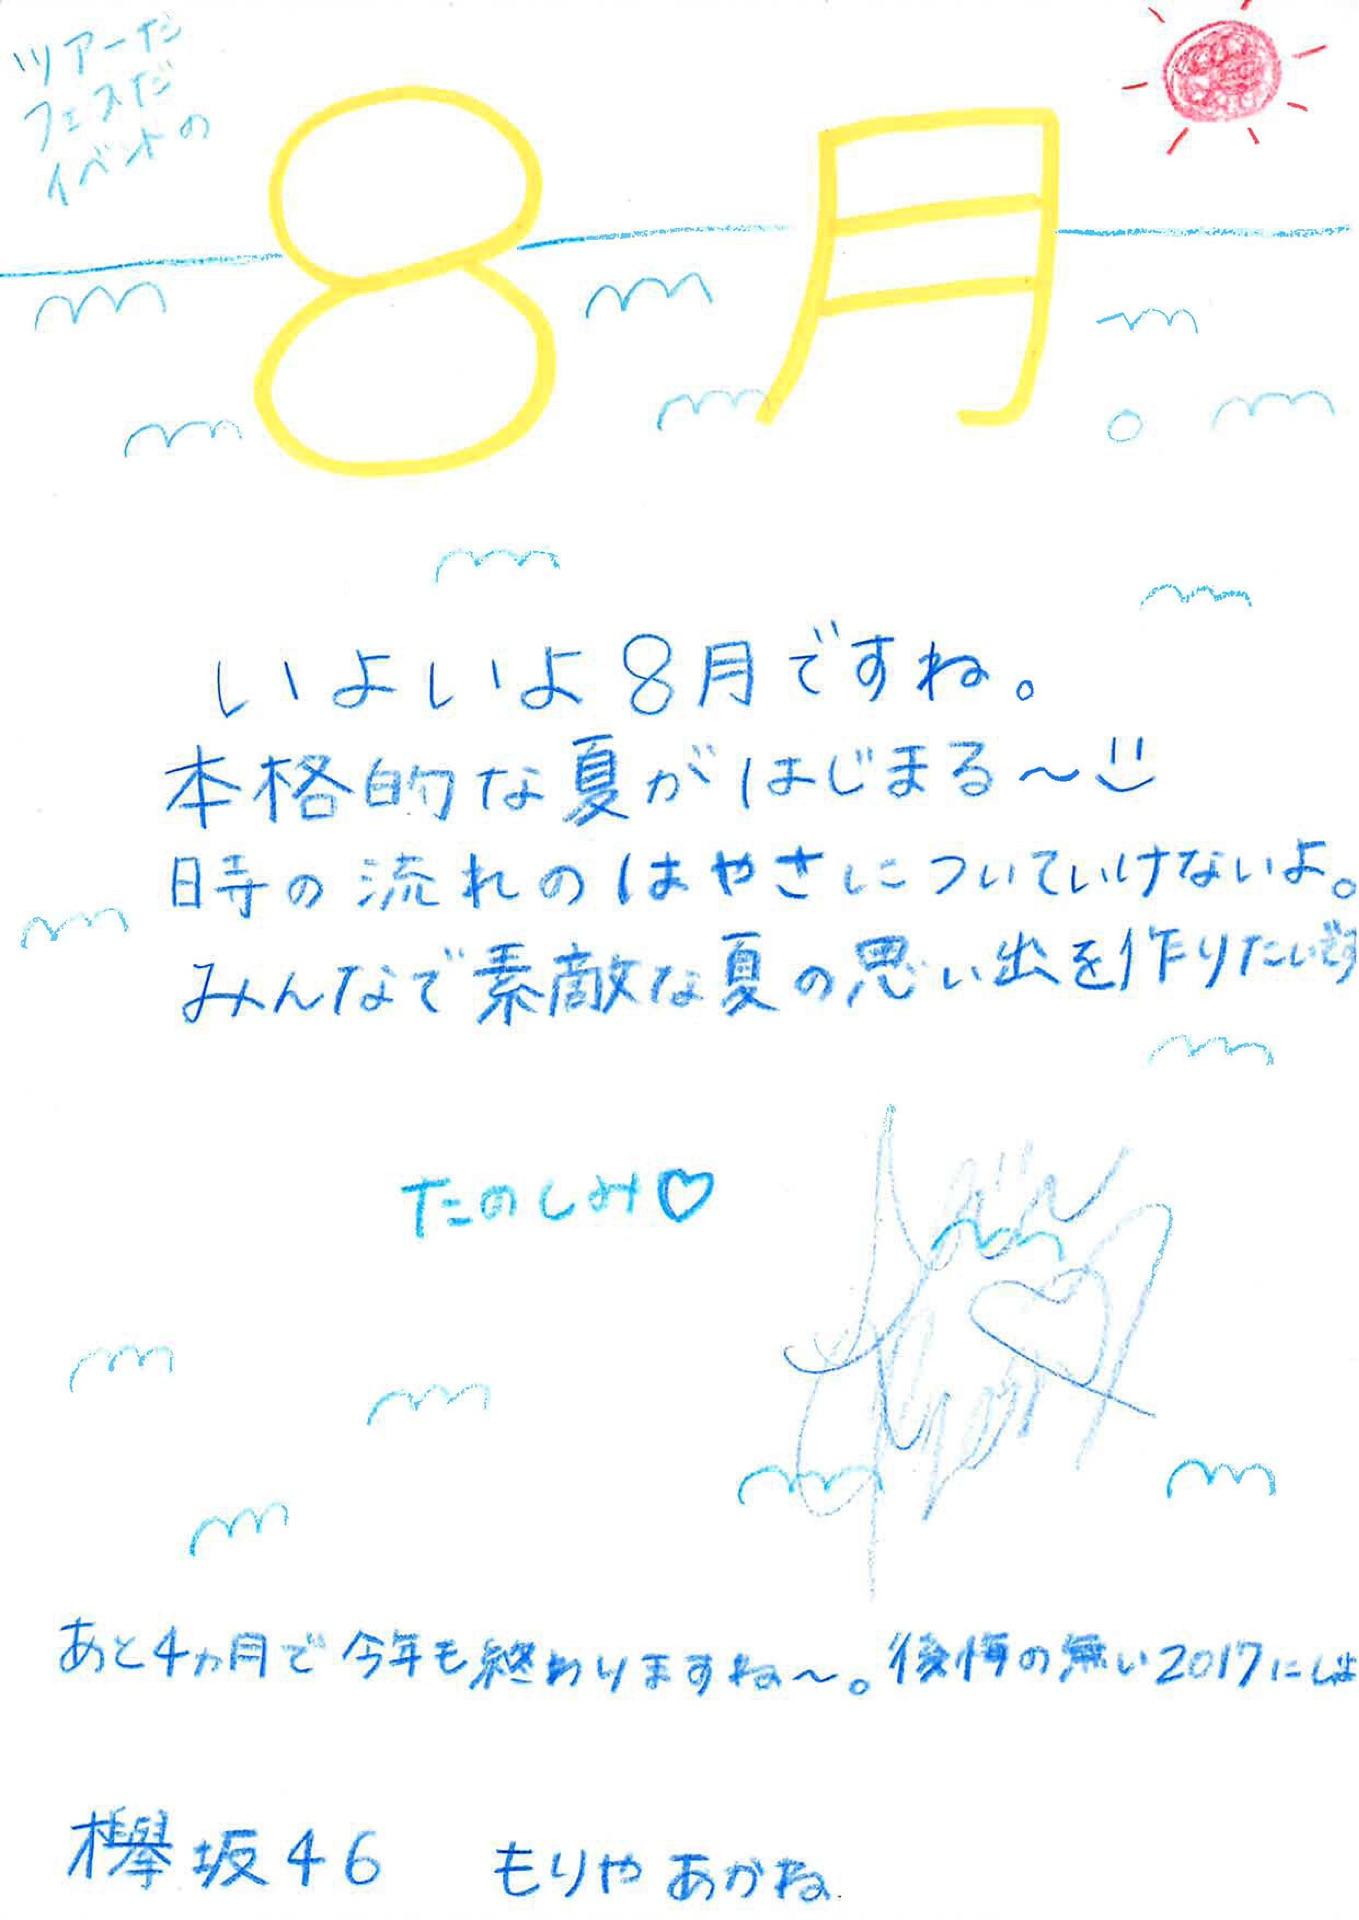 ツアーだ
フェスだ
イベントの
8月。
いよいよ8月ですね。
本格的な夏がはじまる〜
時の流れのはやさについていけないよ。
みんなで素敵な夏の思い出を作りたいです
たのしみ♡
あと4ヵ月で今年も終わりますね〜。後悔の無い2017にしよ
欅坂46 もりやあかね